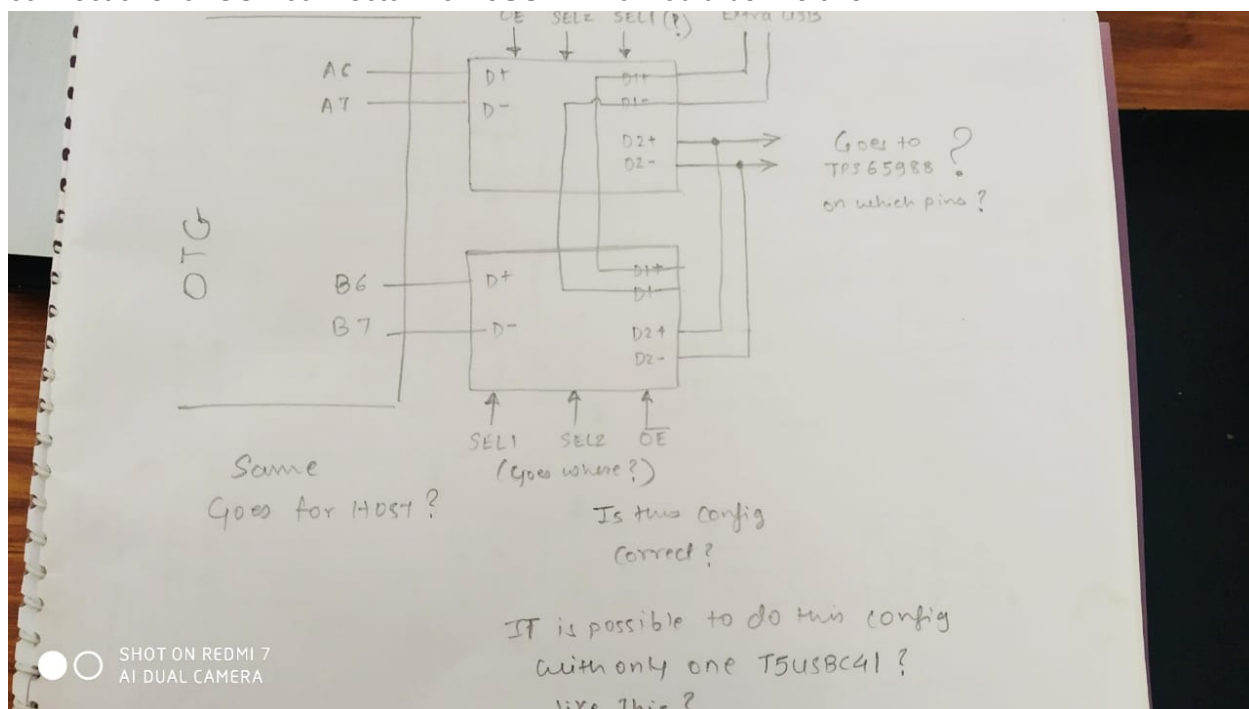 SEL2 SEL1 (?) Extra USB
A6 D+ D1+
A7 D- D1-
D2+
D2-
Goes to
TPS65988 ?
on which pins?
OTG
B6 D+ D1+
B7 D- D1-
D2+
D2-
SEL1 SEL2 OE
(goes where?)
Same
Goes for HOST?
Is this config
correct?
IT is possible to do this config
with only one T5USBC41?
like this?
SHOT ON REDMI 7
AI DUAL CAMERA